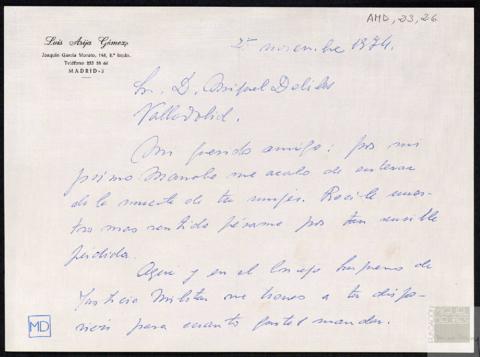 AMD, 23, 26
Luis Arija Gómez
Joaquín García Morato, 144, 8.º Izqda.
MADRID-3
2 noviembre 1974.
Sr. D. Miguel Delibes
Valladolid.
Mi querido amigo: por mi
primo Manolo me acabo de enterar
de la muerte de tu mujer. Recibe nues-
tro mas sentido pésame por tan sensible
pérdida.
Aquí y en el Consejo Supremo de
Justicia Militar me tienes a tu dispo-
sición para cuanto gustes mandar.
MD